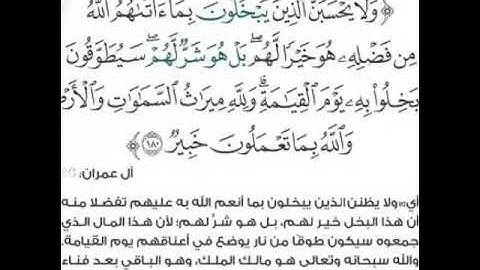 ﴿ وَلَا يَحْسَبَنَّ الَّذِينَ يَبْخَلُونَ بِمَا ءَاتَىٰهُمُ اللَّهُ
مِن فَضْلِهِۦ هُوَ خَيْرًا لَّهُم ۖ بَلْ هُوَ شَرٌّ لَّهُمْ ۖ سَيُطَوَّقُونَ
بَخِلُوا۟ بِهِۦ يَوْمَ الْقِيَامَةِ ۗ وَلِلَّهِ مِيرَاثُ السَّمَاوَاتِ وَالْأَرْضِ
وَاللَّهُ بِمَا تَعْمَلُونَ خَبِيرٌ ١٨٠ ﴾
آل عمران:
أي: ولا يظنن الذين يبخلون بما أنعم الله به عليهم تفضلا منه
أن هذا البخل خير لهم، بل هو شرٌّ لهم؛ لأن هذا المال الذي
جمعوه سيكون طوقا من نار يوضع في أعناقهم يوم القيامة.
والله سبحانه وتعالى هو مالك الملك، وهو الباقي بعد فناء